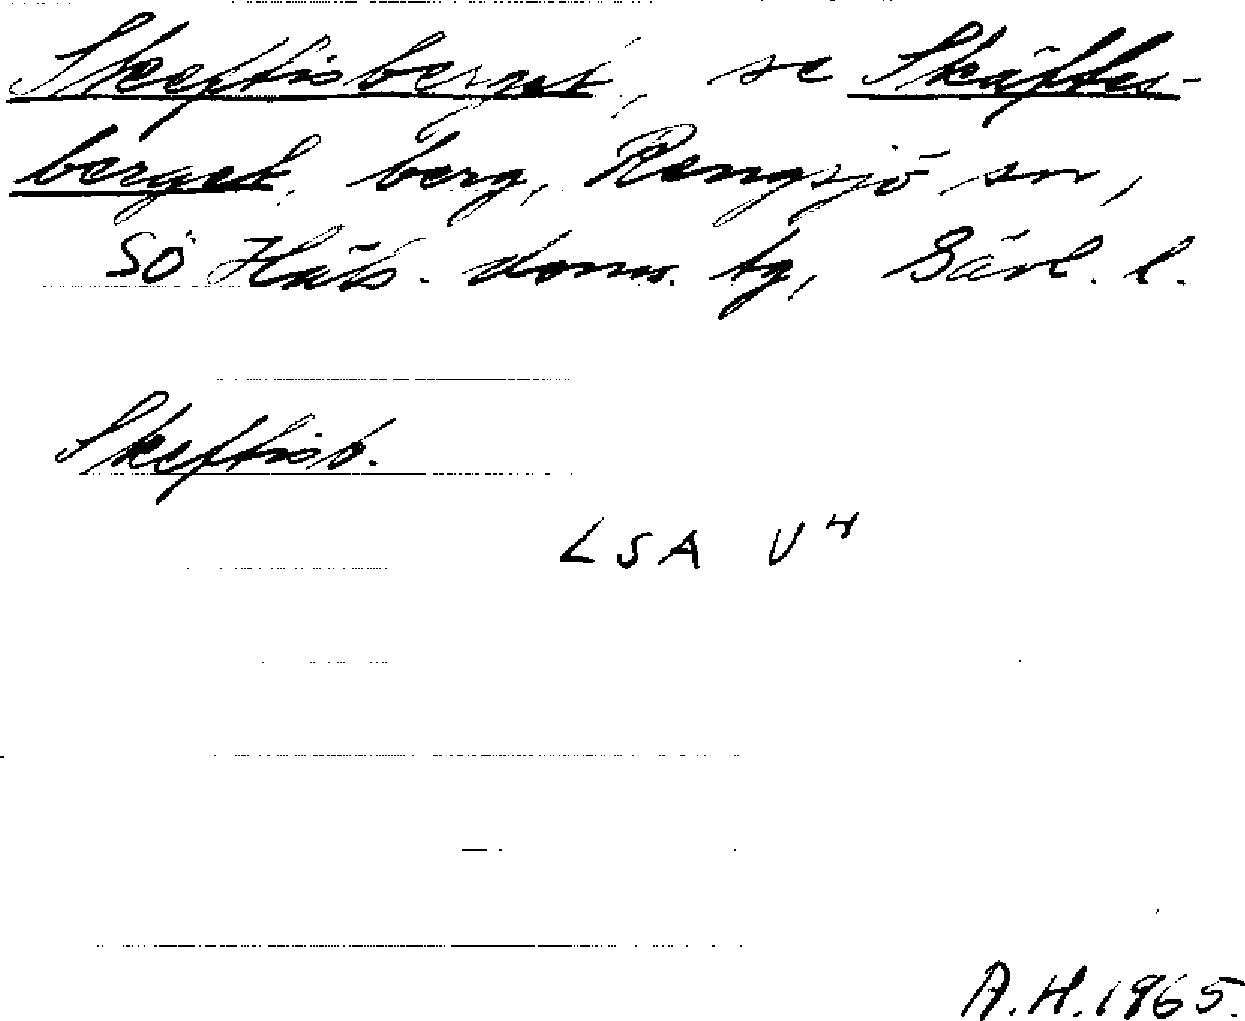 Skeftisberget, se Skäftes-
berget, berg, Rengsjö sn,
SÖ Häls. doms. tg, Gävl. l.
Skeftisb.
LSA U4
A.H. 1965.